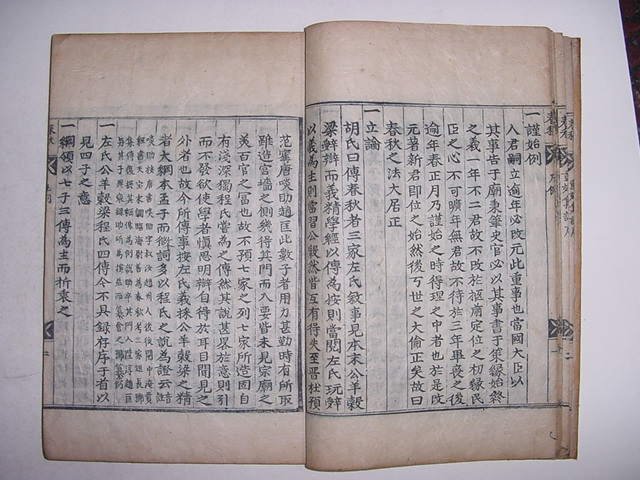 一謹始例
人君嗣立逾年必改元此重事也當國大臣以
其事告于廟秉筆史官必以其事書于策緣始終
之義一年不二君故不改於柩前定位之初緣民
臣之心不可曠年無君故不待於三年畢喪之後
逾年春正月乃謹始之時得理之中者也於是改
元著新君即位之始然後万世之大倫正矣故曰
春秋之法大居正
一立論
胡氏曰傳春秋者三家左氏敘事見本末公羊穀
梁辭辯而義精學經以傳為按則當閱左氏玩辭
以義為主則當習公穀然皆互有得失至晉杜預
范寗唐啖助趙匡此數子者用力甚勤時有所取
雖造宮墻之側幾得其門而入要皆未見宗廟之
美百官之富也故不預七家之列七家所造固自
有淺深獨程氏嘗為之傳然其說甚畧於意則引
而不發欲使學者愼思明辯自得於耳目聞見之
外者也故今所傳事按左氏義採公羊穀梁之精
者大綱本孟子而微詞多以程氏之說為證云
見四子之意
一左氏公羊穀梁程氏四傳今不具録存序于首以
一綱領以七子三傳為主而折衷之